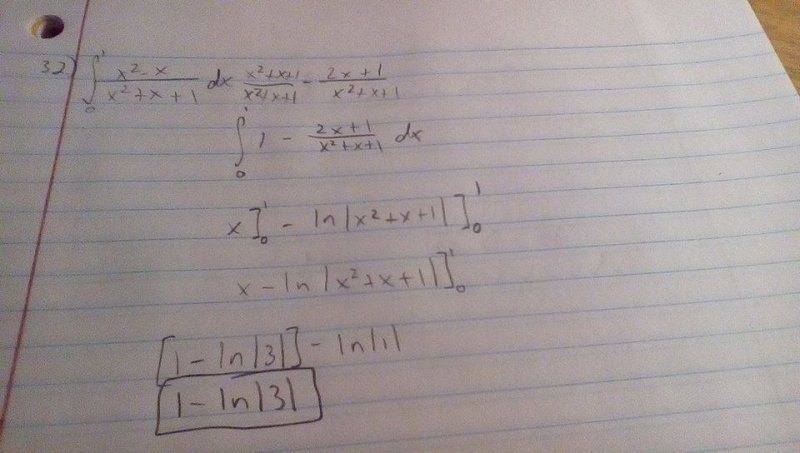 32) ∫₀¹ (x²-x)/(x²+x+1) dx (x²+x+1)/(x²+x+1) - (2x+1)/(x²+x+1)
∫₀¹ 1 - (2x+1)/(x²+x+1) dx
x]₀¹ - ln|x²+x+1|]₀¹
x - ln|x²+x+1|]₀¹
[1 - ln|3|] - ln|1|
1 - ln|3|